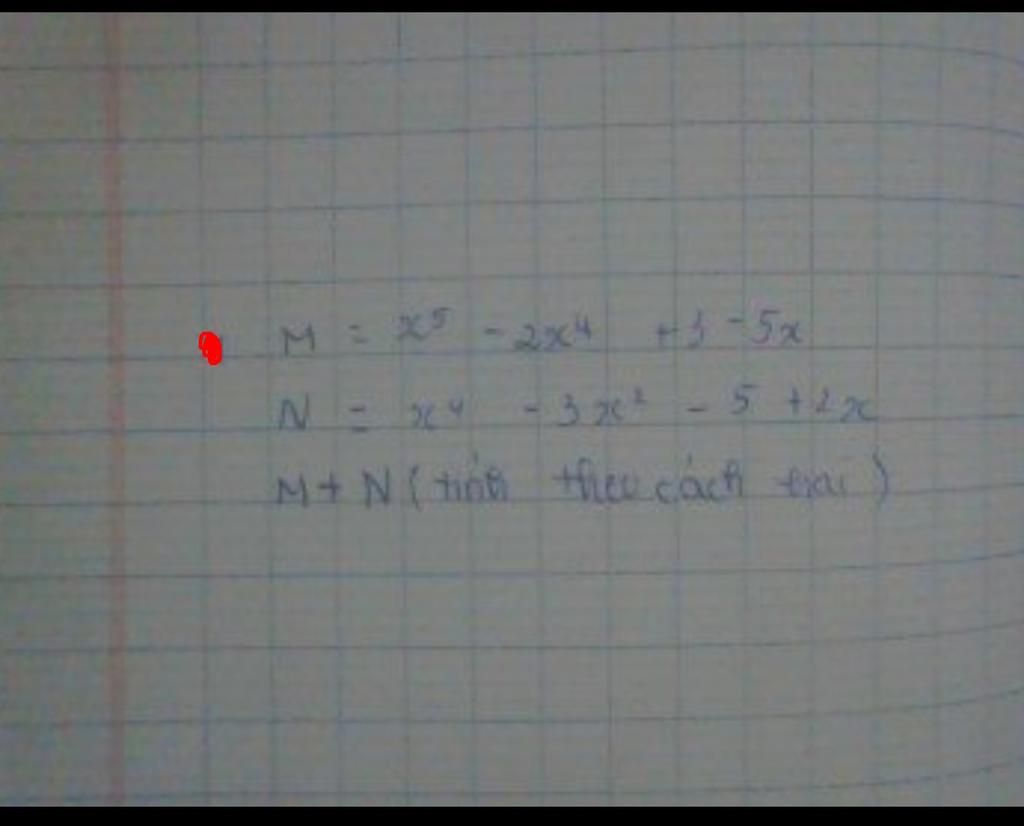 M = x⁵ - 2x⁴ + 3 - 5x
N = x⁴ - 3x² - 5 + 2x
M + N ( tính theo cách